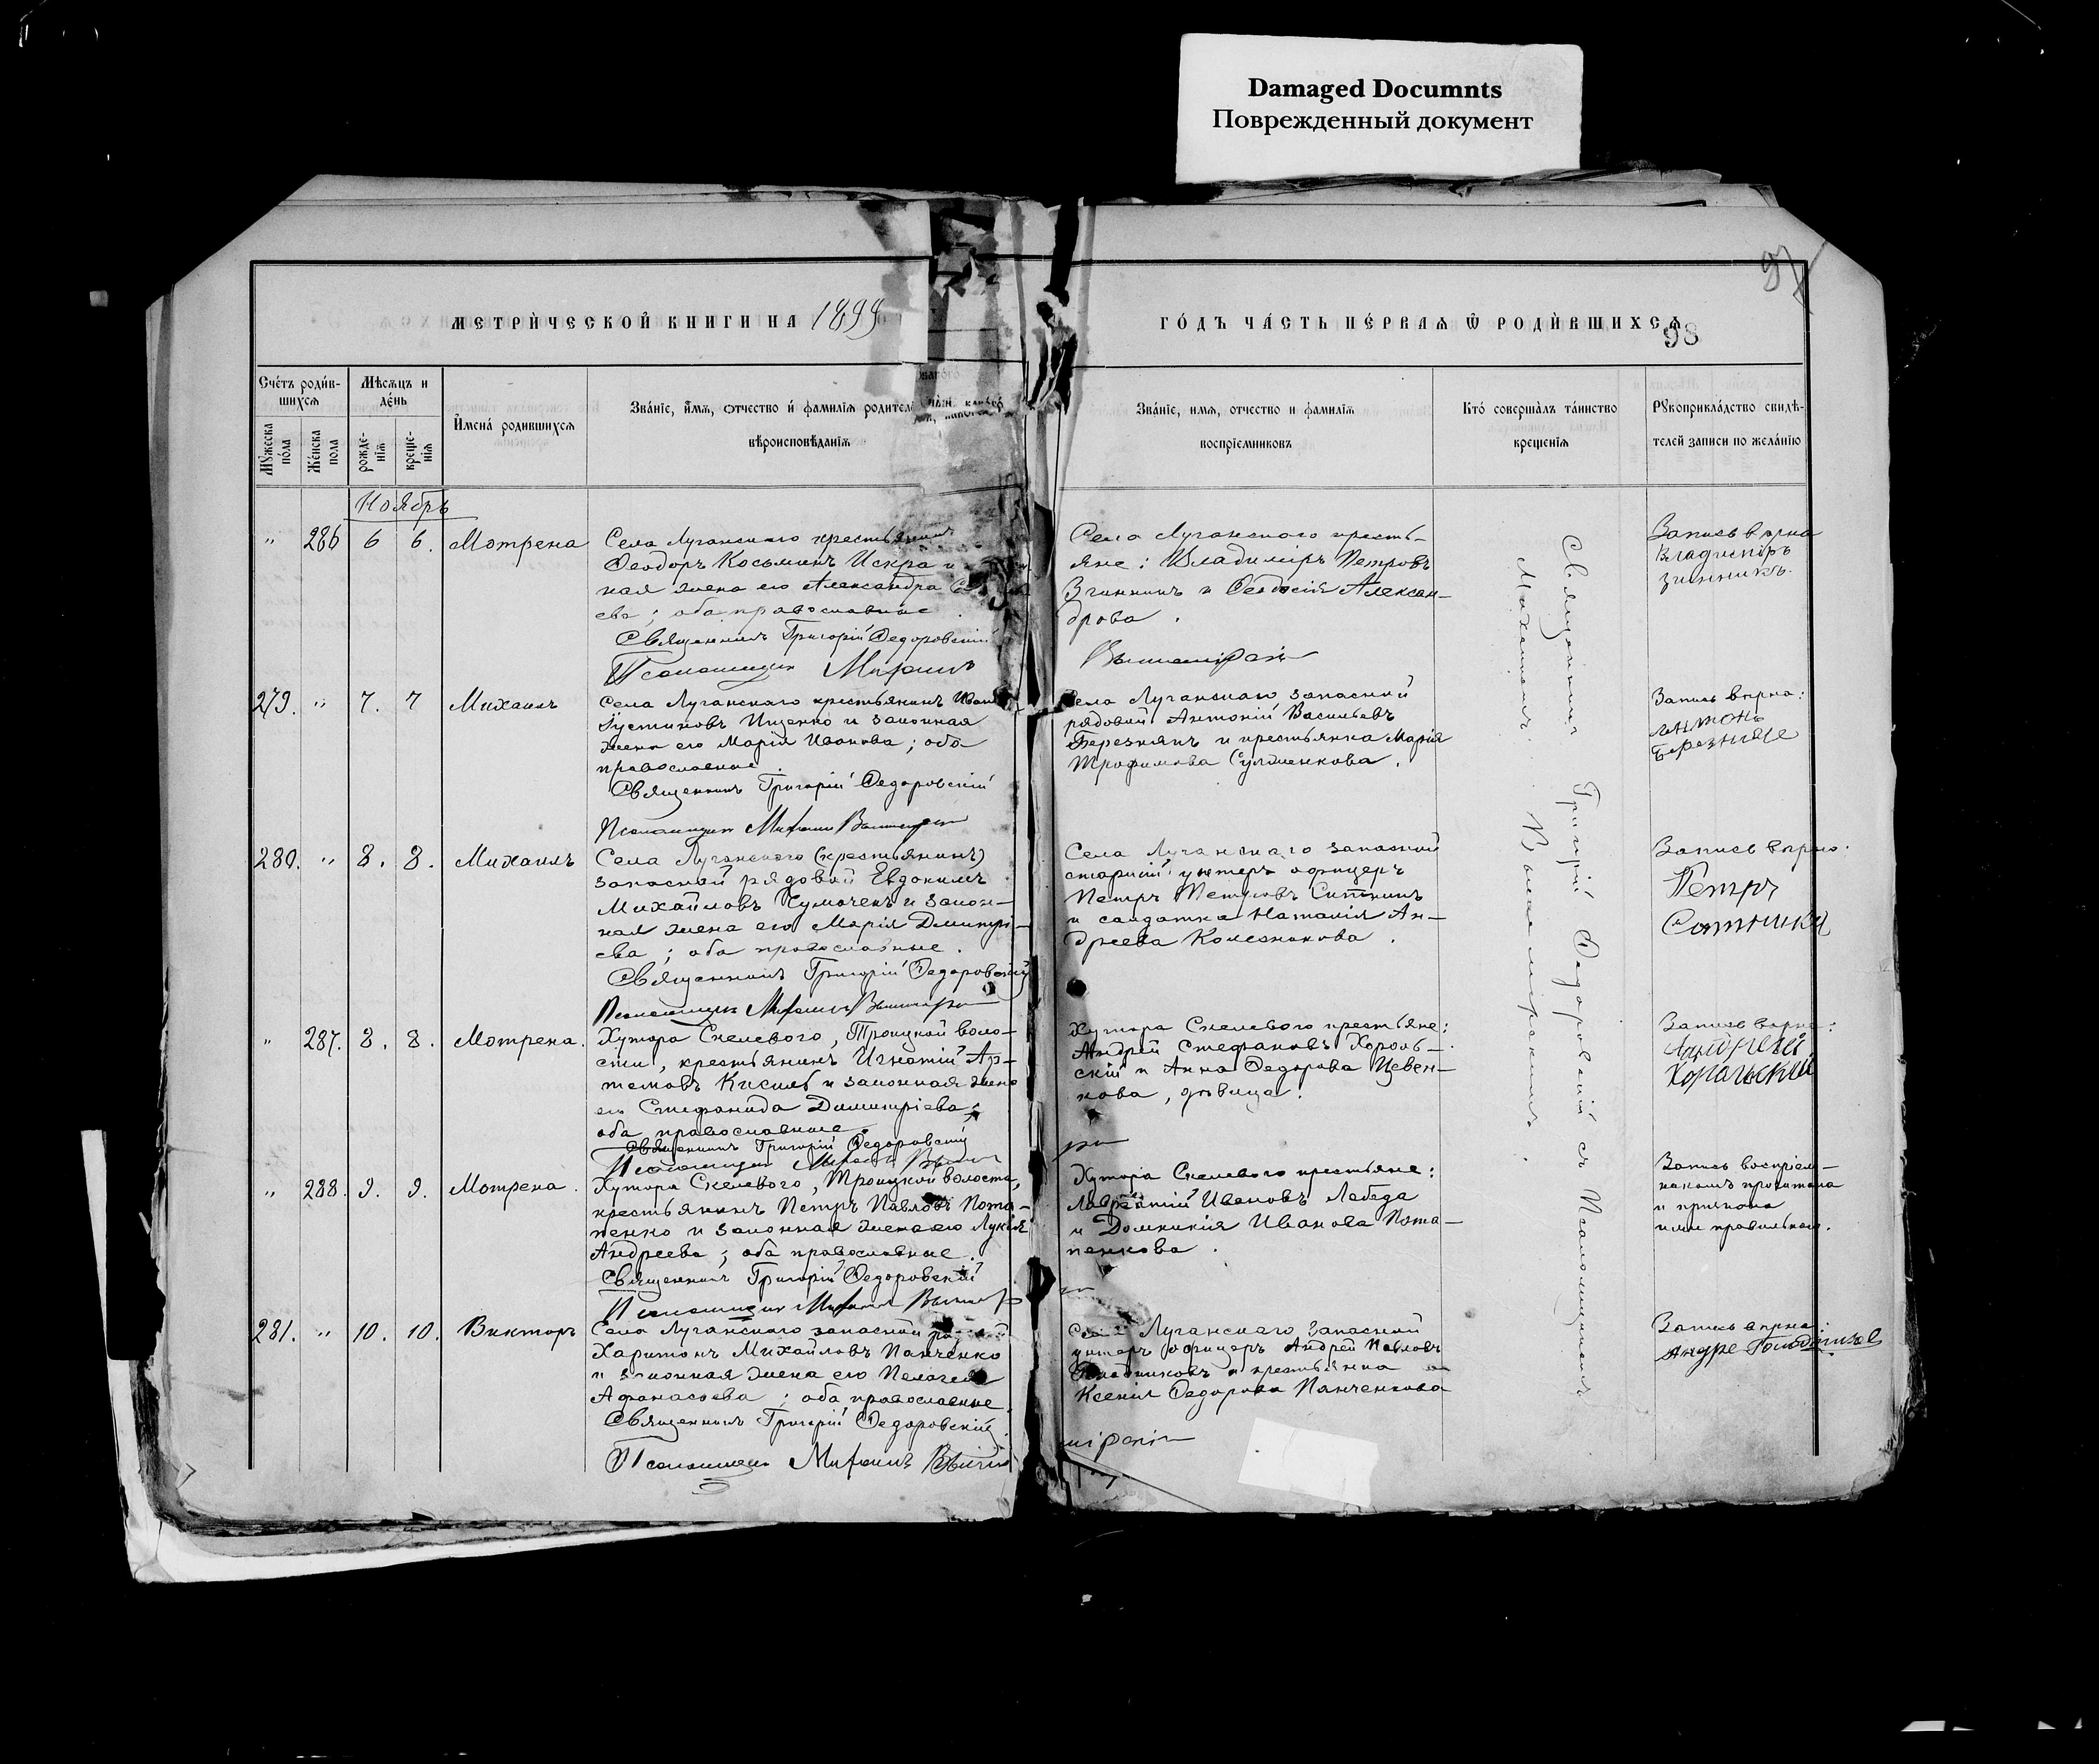 Damaged Documnts
Поврежденный документ
97
МЕТРИЧЕСКОЙ КНИГИ НА 1899
ГОДЪ ЧАСТЬ ПЕРВАЯ Ѿ РОДИВШИХСЯ
98
Счетъ родив-
шихся
Мужеска пола
Женска пола
Мѣсяцъ и
день
рожде-
нія
креще-
нія
Имена родившихся
Званіе, имя, отчество и фамилія родител
вѣроисповѣданія
Званіе, имя, отчество и фамилія
воспріемниковъ
Кто совершалъ таинство
крещенія
Рукоприкладство свидѣ-
телей записи по желанію
Ноябрь
" 286 6 6. Мотрена
Села Луганскаго крестьянинъ
Ѳеодоръ Косьминъ Искра и
ная жена его Александра
ева; оба православные
Священникъ Григорій Ѳедоровскій
Псаломщикъ Михаилъ
Села Луганскаго кресть-
яне: Владиміръ Петровъ
Зинникъ и Ѳеодосія Алексан-
дрова.
Запись вѣрна
Владиміръ
Зинникъ
279. " 7. 7 Михаилъ
Села Луганскаго крестьянинъ Иванъ
Іустиновъ Ищенко и законная
жена его Марія Иванова; оба
православные.
Священникъ Григорій Ѳедоровскій
Псаломщикъ Михаилъ
Села Луганскаго запасной
рядовой Антоній Васильевъ
Березнякъ и крестьянка Марія
Трофимова
Запись вѣрна:
Антонъ
280. " 8. 8. Михаилъ
Села Луганскаго (крестьянинъ)
запасной рядовой Евдокимъ
Михайловъ Чумаченъ и закон-
ная жена его Марія Димитрі-
ева; оба православные.
Священникъ Григорій Ѳедоровскій
Псаломщикъ Михаилъ
Села Луганскаго запасной
старшій унтеръ офицеръ
Петръ Петровъ
и солдатка Наталія Ан-
дреева Колесникова.
Запись вѣрна.
Петръ
" 287. 8. 8. Мотрена.
Хутора Скелеваго, Троицкой воло-
сти, крестьянинъ Игнатій Ар-
темовъ Кисиль и законная жена
его Стефанида Димитріева;
оба православные.
Священникъ Григорій Ѳедоровскій
Псаломщикъ
Хутора Скелеваго крестьяне:
Андрей Стефановъ Хороль-
скій и Анна Ѳедорова Цевен-
кова, дѣвица.
Запись вѣрна:
Андрей
Хорольскій
" 288. 9. 9. Мотрена.
Хутора Скелеваго, Троицкой волости,
крестьянинъ Петръ Павловъ Пота-
пенко и законная жена его Лукія
Андреева; оба православные.
Священникъ Григорій Ѳедоровскій
Псаломщикъ Михаилъ
Хутора Скелеваго крестьяне:
Лаврентій Ивановъ Лебеда
и Домникія Иванова Пота-
пенкова.
Запись воспріем-
никомъ прочитана
и признана
ими правильною.
281. " 10. 10. Викторъ
Села Луганскаго запасной рядовой
Харитонъ Михайловъ Панченко
и законная жена его Пелагея
Афанасьева; оба православные.
Священникъ Григорій Ѳедоровскій
Псаломщикъ Михаилъ
Села Луганскаго запасной
унтеръ офицеръ Андрей Павловъ
и крестьянка
Ксенія Ѳедорова Панченкова
Запись вѣрна:
Андре
Священникъ Григорій Ѳедоровскій съ Псаломщикомъ
Михаиломъ